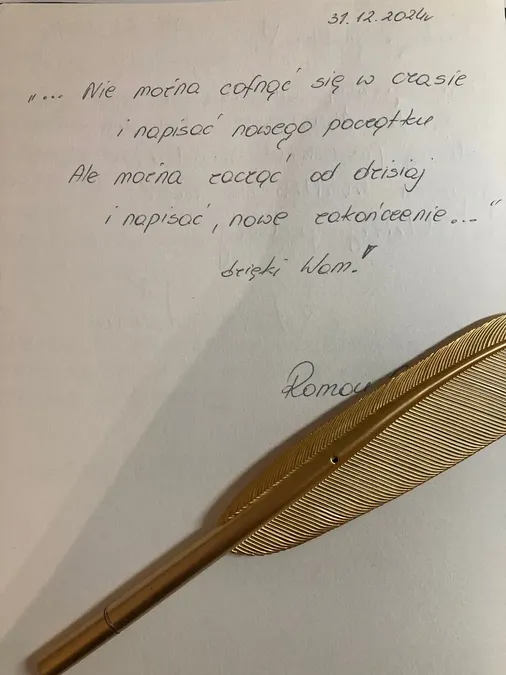 31.12.2024r
"... Nie można cofnąć się w czasie
i napisać nowego początku
Ale można zacząć od dzisiaj
i napisać, nowe zakończenie..."
dzięki Wam!